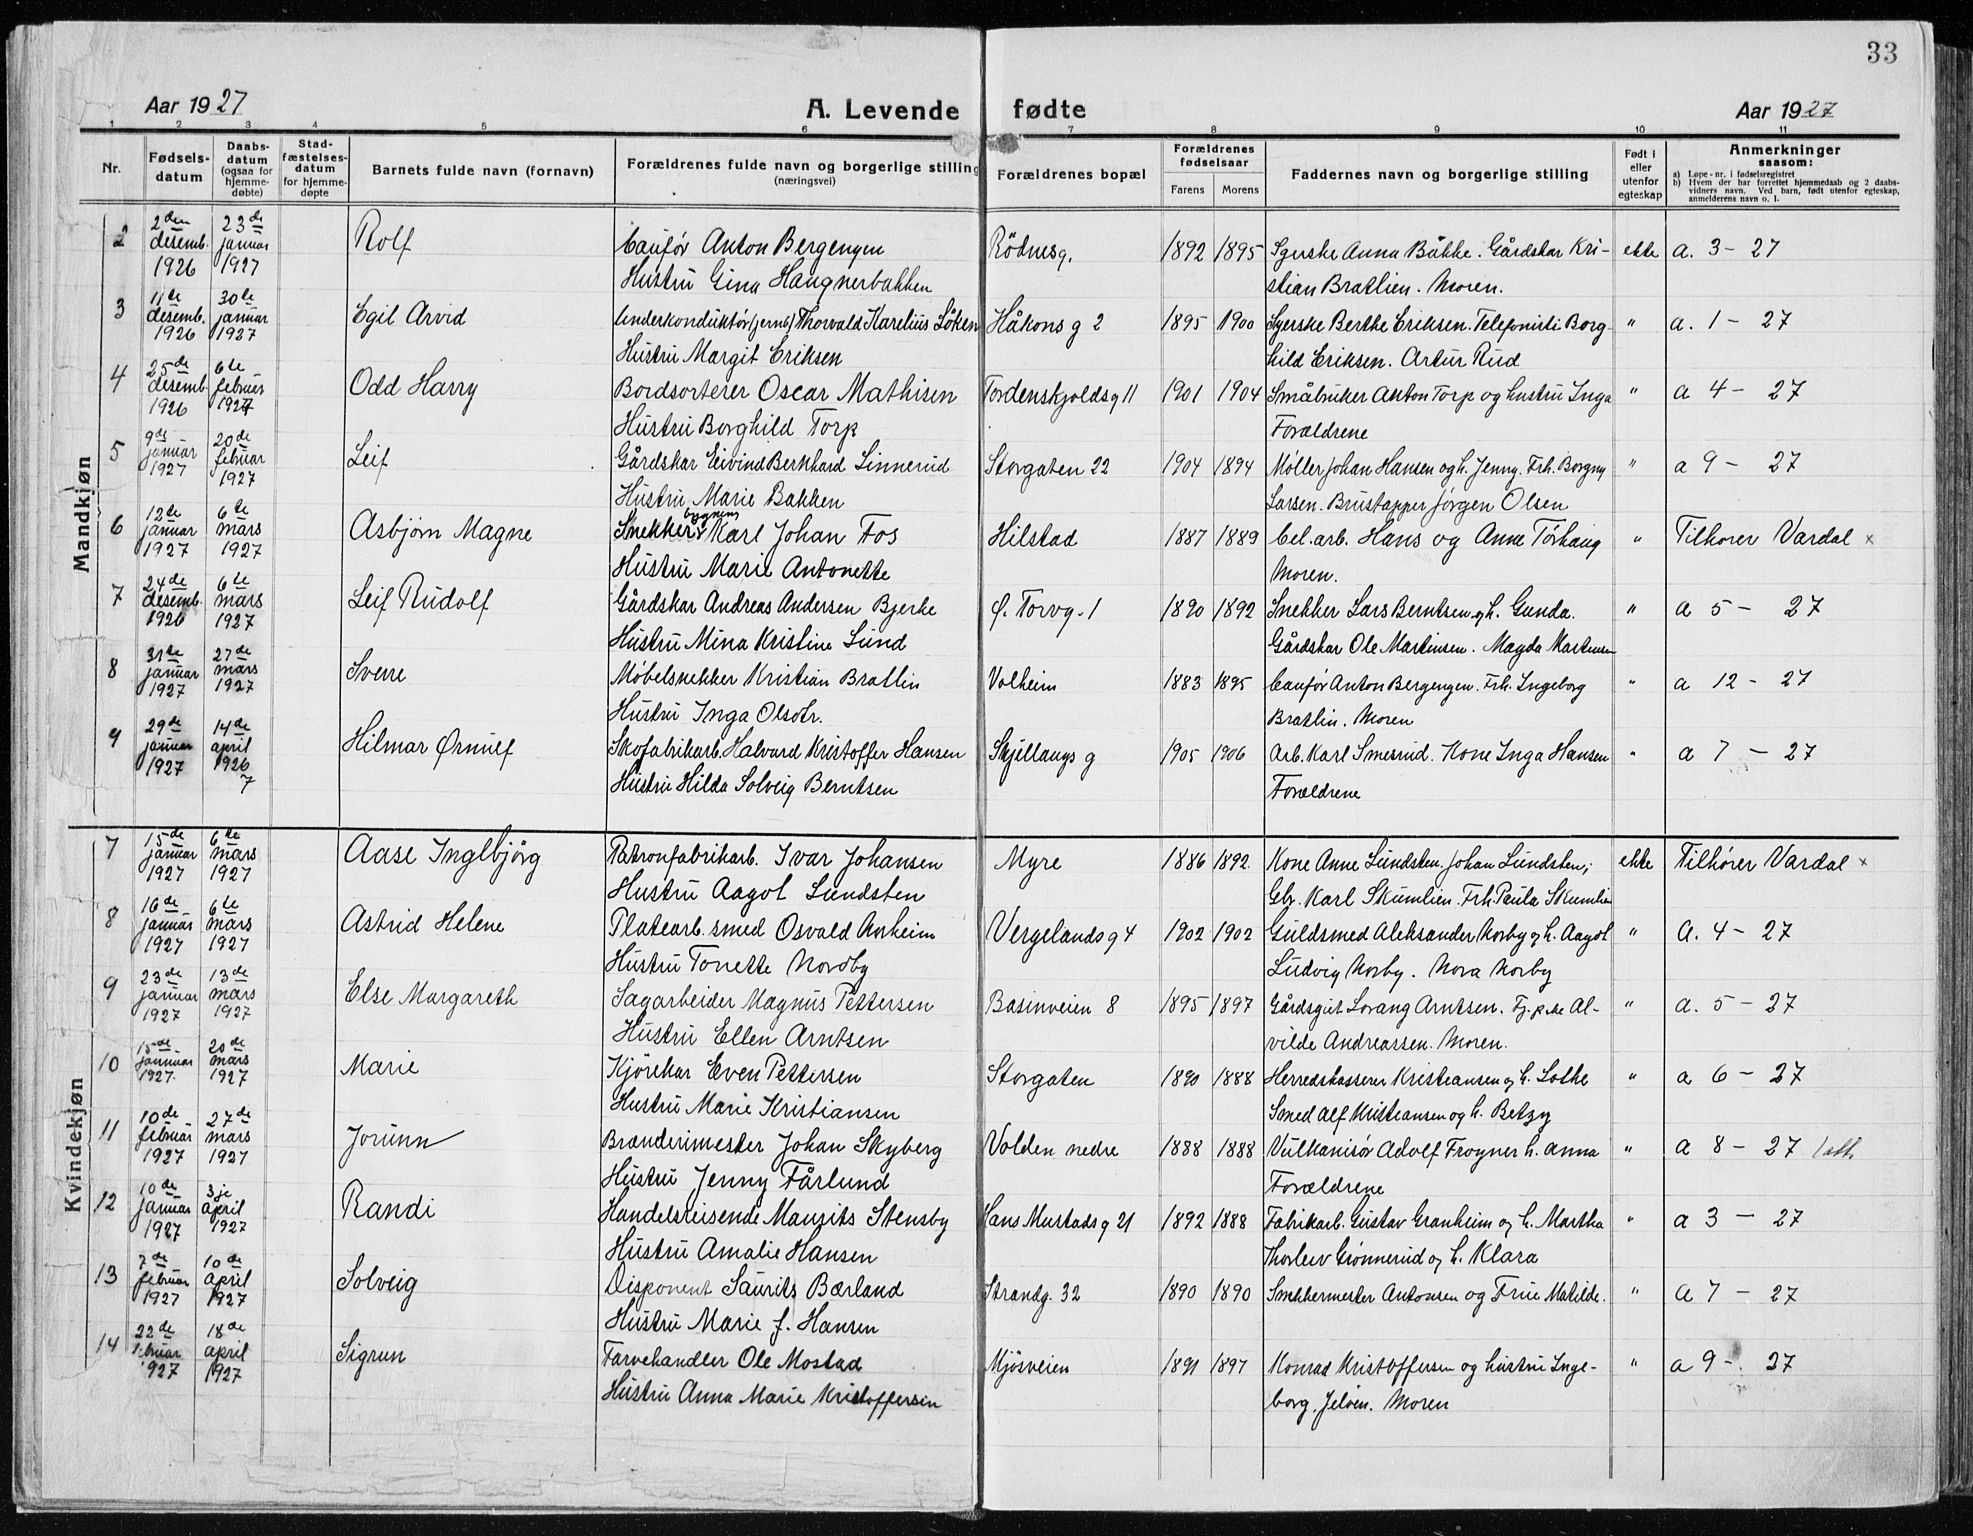 33
Aar 1927
A. Levende fødte
Aar 1927
1 2 3 4 5 6 7 8 9 10 11
Nr.
Fødselsdatum
Daabsdatum (ogsaa for hjemmedøbte)
Stadfæstelsesdatum for hjemmedøpte
Barnets fulde navn (fornavn)
Forældrenes fulde navn og borgerlige stilling
(næringsvei)
Forældrenes bopæl
Forældrenes fødselsaar
Farens Morens
Faddernes navn og borgerlige stilling
Født i eller utenfor egteskap
Anmerkninger
saasom:
a) Løpe-nr. i fødselsregistret
b) Hvem der har forrettet hjemmedaab og 2 daabsvidners navn. Ved barn, født utenfor egteskap, anmelderens navn o. l.
Mandkjøn
2 2den desemb. 1926 23de januar 1927 Rolf Caufør Anton Bergengen Rödnesg. 1892 1895 Syerske Anna Bäkke. Gårdskar Kri- ekte a. 3 - 27
Hustru Gina Haugnerbakken stian Bratlien. Moren.
3 11te desemb. 1926 30te januar 1927 Egil Arvid Underkonduktör (jernb) Thorvald Karelius Löken Håkons g 2 1895 1900 Syerske Berthe Eriksen. Telefonisti Borg- " a. 1 - 27
Hustru Margit Eriksen hild Eriksen. Artur Rud
4 25de desemb. 1926 6te februar 1927 Odd Harry Bordsorterer Oscar Mathisen Tordenskjoldsg 11 1901 1904 Småbruker Anton Torp og hustru Inga " a 4 - 27
Hustru Borghild Torp Forældrene
5 9de januar 1927 20de februar 1927 Leif Gårdskar Eivind Bernhard Linnerud Storgaten 22 1904 1894 Møller Johan Hansen og h. Jenny. Frh. Borgny " a 9 - 27
Hustru Marie Bakken Larsen. Brustapper Jørgen Olsen
6 12te januar 1927 6te mars 1927 Asbjørn Magne Snekker Karl Johan Fos Hilstad 1887 1889 Cel.arb. Hans og Anne Törhaug " Tilhører Vardal x
Hustru Marie Antonette Moren.
7 24de desemb. 1926 6te mars 1927 Leif Rudolf Gårdskar Andreas Andersen Bjerke Ø. Torvg. 1 1890 1892 Snekker Lars Berntsen og h. Gunda. " a 5 - 27
Hustru Mina Kristine Lund Gårdskar Ole Martinsen. Magda Martinsen
8 31te januar 1927 27de mars 1927 Sverre Møbelsnekker Kristian Bratlin Volheim 1883 1895 Caufør Anton Bergengen. Frh. Ingeborg " a 12 - 27
Hustru Inga Olsdtr. Bratlin. Moren
9 29de januar 1927 14de april 1926 7 Hilmar Ørnulf Skofabrikarb. Halvard Kristoffer Hansen Skjellangs g 1905 1906 Arb. Karl Smesrud. Kone Inga Hansen " a 7 - 27
Hustru Hilda Solveig Berntsen Forældrene
Kvindekjøn
7 15de januar 1927 6te mars 1927 Aase Inglbjörg Patronfabrikarb. Ivar Johansen Myre 1886 1892 Kone Anne Lundsten. Johan Lundsten; ekte Tilhører Vardal x
Hustru Aagot Lundsten Gbr. Karl Skumlien. Frh. Paula Skumlien
8 16de januar 1927 6te mars 1927 Astrid Helene Platearb. smed Osvald Aarheim Vergelands g 4 1902 1902 Guldsmed Aleksander Norby og h. Aagot " a. 4 - 27
Hustru Tonette Nordby Ludvig Norby. Nora Norby
9 23de januar 1927 13de mars 1927 Else Margareth Sagarbeider Magnus Pettersen Basinveien 8 1895 1897 Gårdsgut Lorang Arntsen. Tj.pike Al- " a. 5 - 27
Hustru Ellen Arntsen vilde Andreassen. Moren.
10 15de januar 1927. 20de mars 1927 Marie Kjörekar Even Pettersen Storgaten 1890 1888 Herredskasserer Kristiansen og h. Lothe " a 6 - 27
Hustru Marie Kristiansen Smed Alf Kristiansen og h. Betzy
11 10de februar 1927 27de mars 1927 Jorunn Brænderimester Johan Skyberg Volden nedre 1888 1888 Vulkanisør Adolf Frogner h. Anna " a 8 - 27
Hustru Jenny Fårlund Forældrene
12 10de januar 1927 3je april 1927 Randi Handelsreisende Maurits Stensby Hans Mustads g 21 1892 1888 Fabrikarb. Gustav Granheim og h. Martha " a 3 - 27
Hustru Amalie Hansen Thorleiv Grønnerud og h. Klara
13 7de februar 1927 10de april 1927 Solveig Disponent Laurits Bærland Strandg. 32 1890 1890 Snekkermester Antonsen og Frue Matilde. " a 7 - 27
Hustru Marie f. Hansen
14 22de februar 1927 18de april 1927 Sigrun Farvehandler Ole Mostad Mjøsveien 1891 1897 Konrad Kristoffersen og hustru Inge- " a 9 - 27
Hustru Anna Marie Kristoffersen borg. Jelöen. Moren